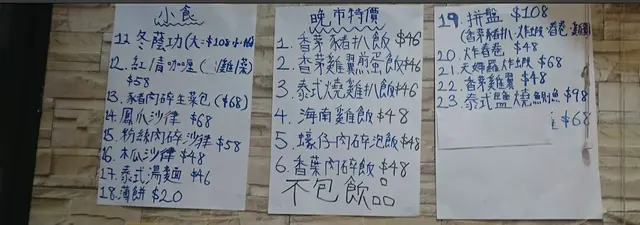 小食
11. 冬蔭功(大=$108小
12. 紅/青咖喱 (
$58
13. 豬肉碎生菜包 ($68)
14. 鳳爪沙律 $68
15. 粉絲肉碎沙律 $58
16. 木瓜沙律 $48
17. 泰式湯麵 $46
18. 薄餅 $20
晚市特價
1. 香茅豬扒飯 $46
2. 香茅雞翼煎蛋飯 $46
3. 泰式燒雞扒飯 $46
4. 海南雞飯 $48
5. 蠔仔肉碎泡飯 $48
6. 香葉肉碎飯 $48
不包飲品
19. 拼盤 $108
(香茅豬扒、炸蝦
20. 炸春卷 $48
21. 天婦羅炸蝦 $68
22. 香茅雞翼 $48
23. 泰式鹽燒鯛魚 $98
$68